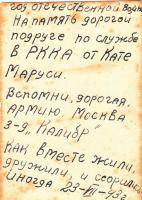 год отечественной войны
На память дорогой
подруге по службе
в РККА от Кате
Маруси.
Вспомни, дорогая,
Армию, Москва
3-я, "Калибр"
Как вместе жили,
дружили, и ссорились
иногда 23-VI-43г